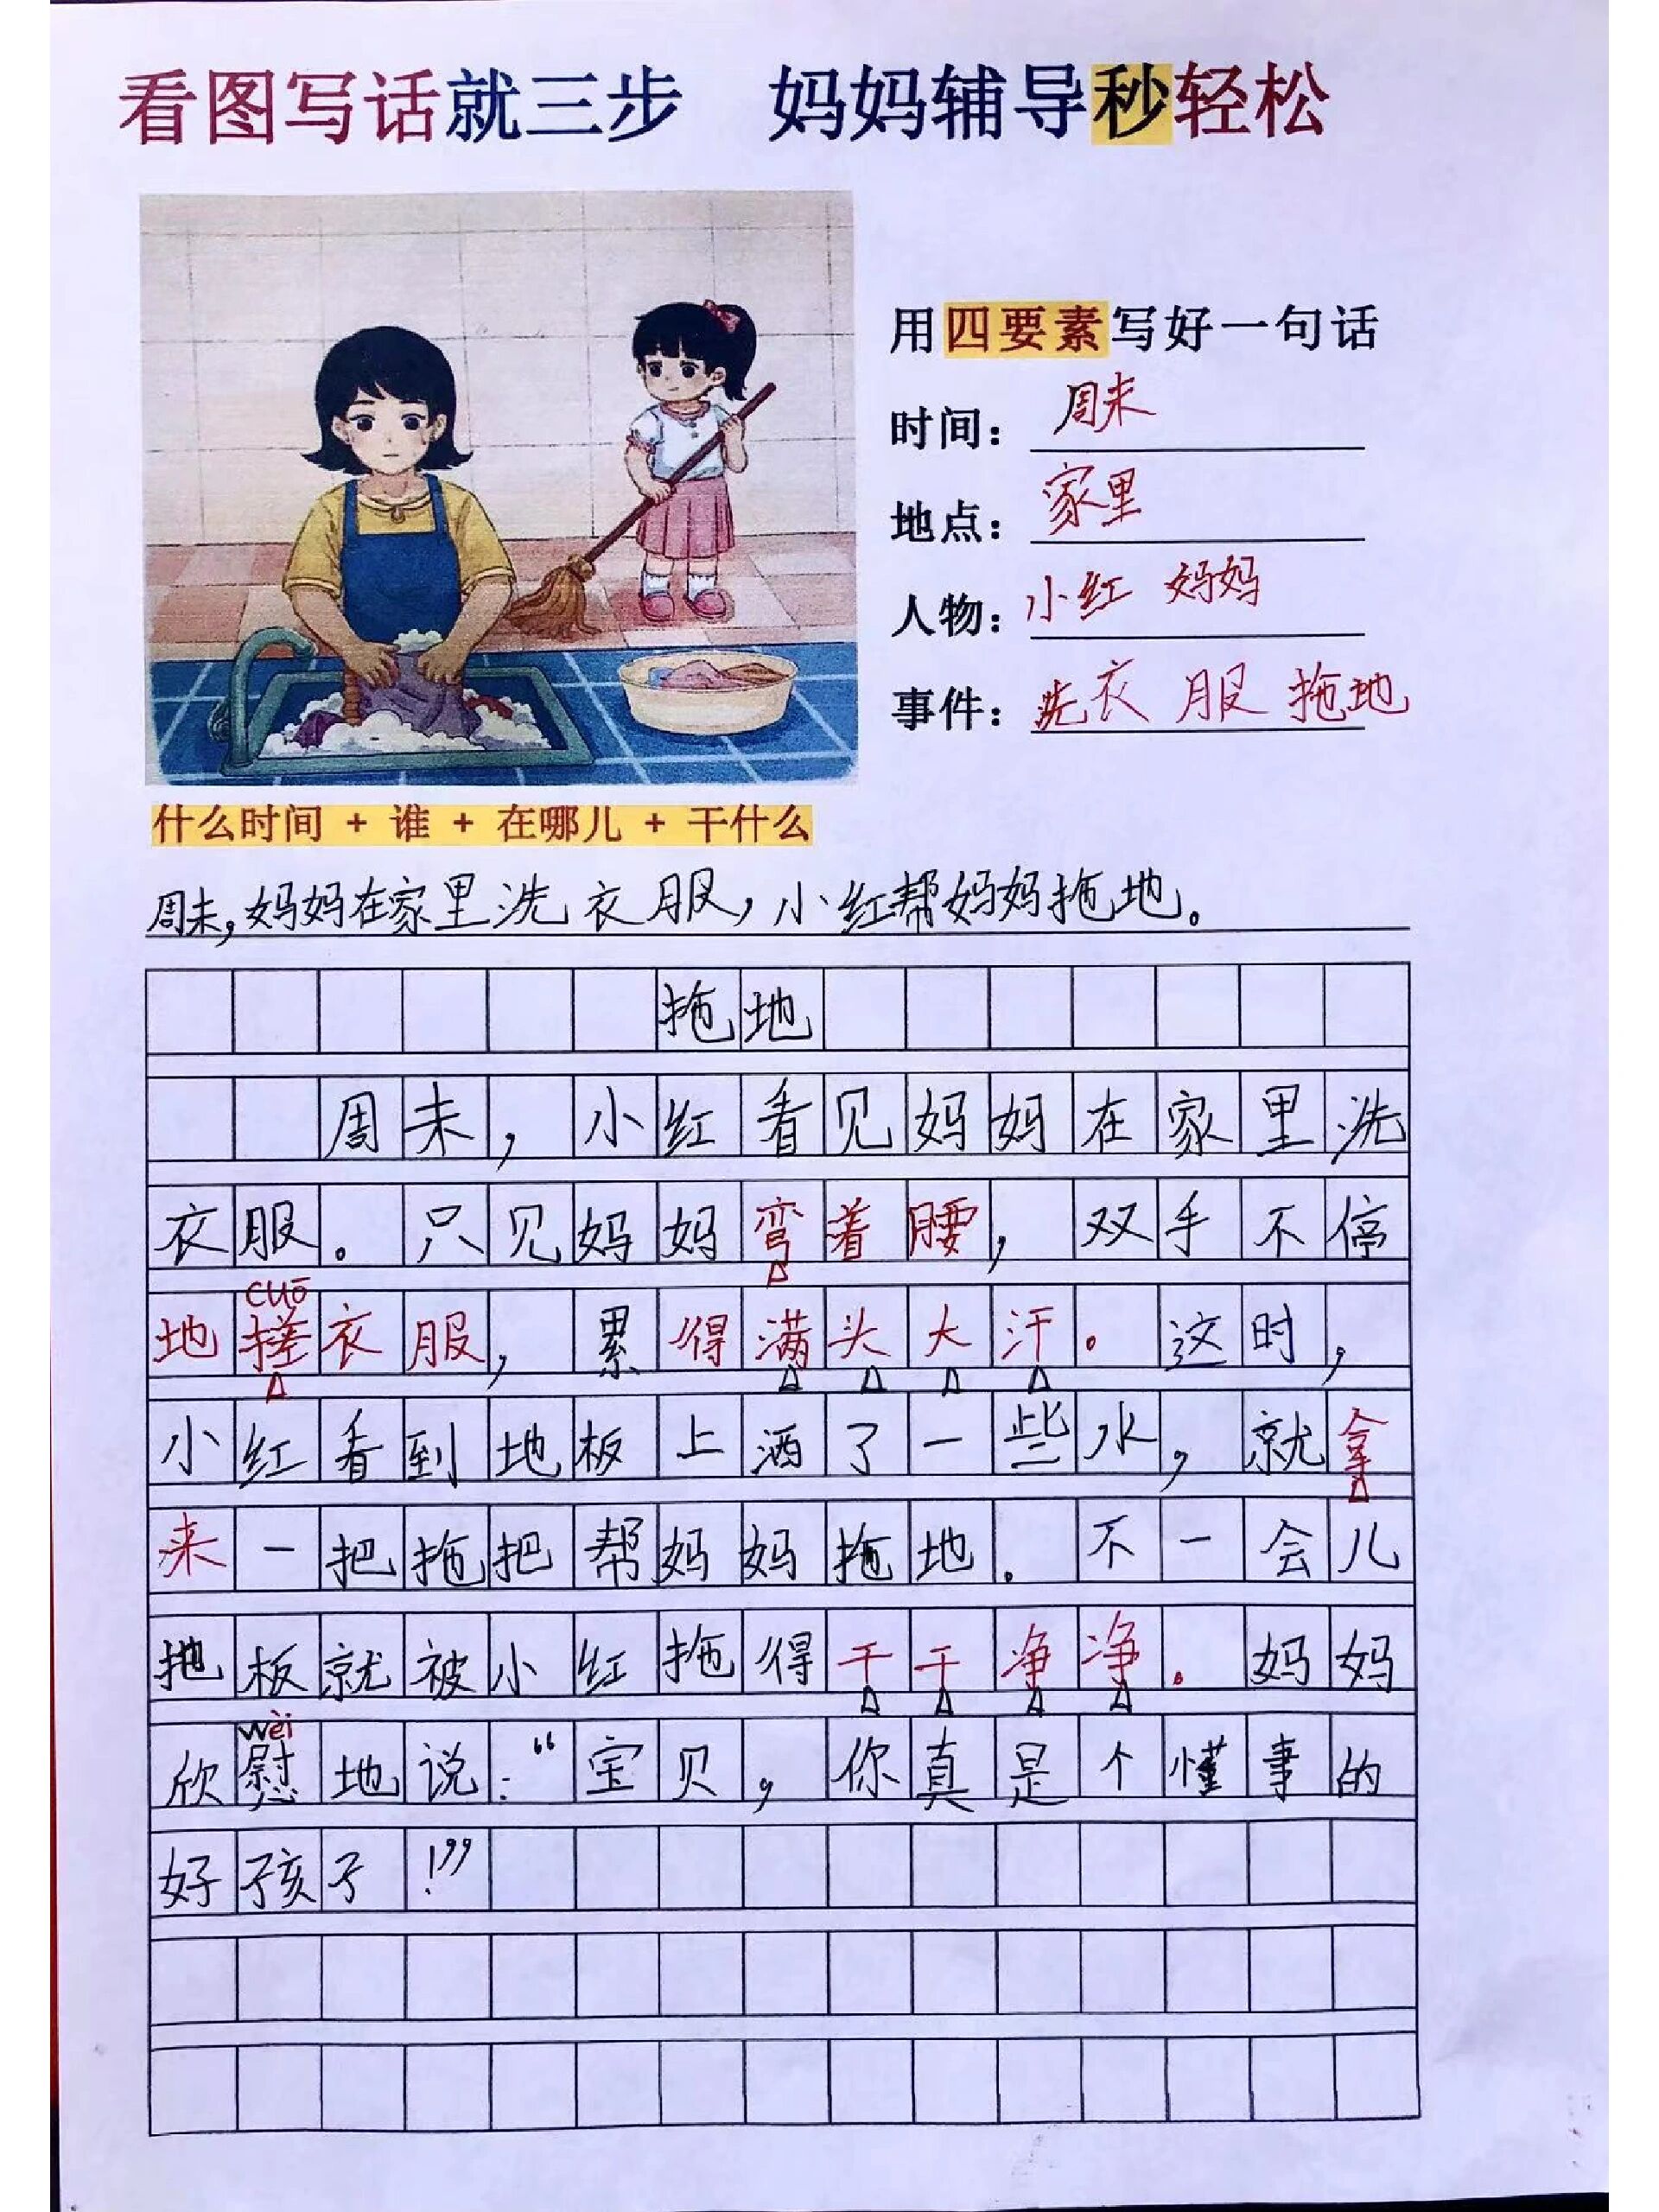 看图写话就三步 妈妈辅导秒轻松
用四要素写好一句话
时间：周末
地点：家里
人物：小红 妈妈
事件：洗衣服 拖地
什么时间 + 谁 + 在哪儿 + 干什么
周末，妈妈在家里洗衣服，小红帮妈妈拖地。
拖地
周末，小红看见妈妈在家里洗
衣服。只见妈妈弯着腰，双手不停
cuō
地搓衣服，累得满头大汗。这时，
小红看到地板上洒了一些水，就拿
来一把拖把帮妈妈拖地。不一会儿
地板就被小红拖得干干净净。妈妈
wèi
欣慰地说：“宝贝，你真是个懂事的
好孩子！”